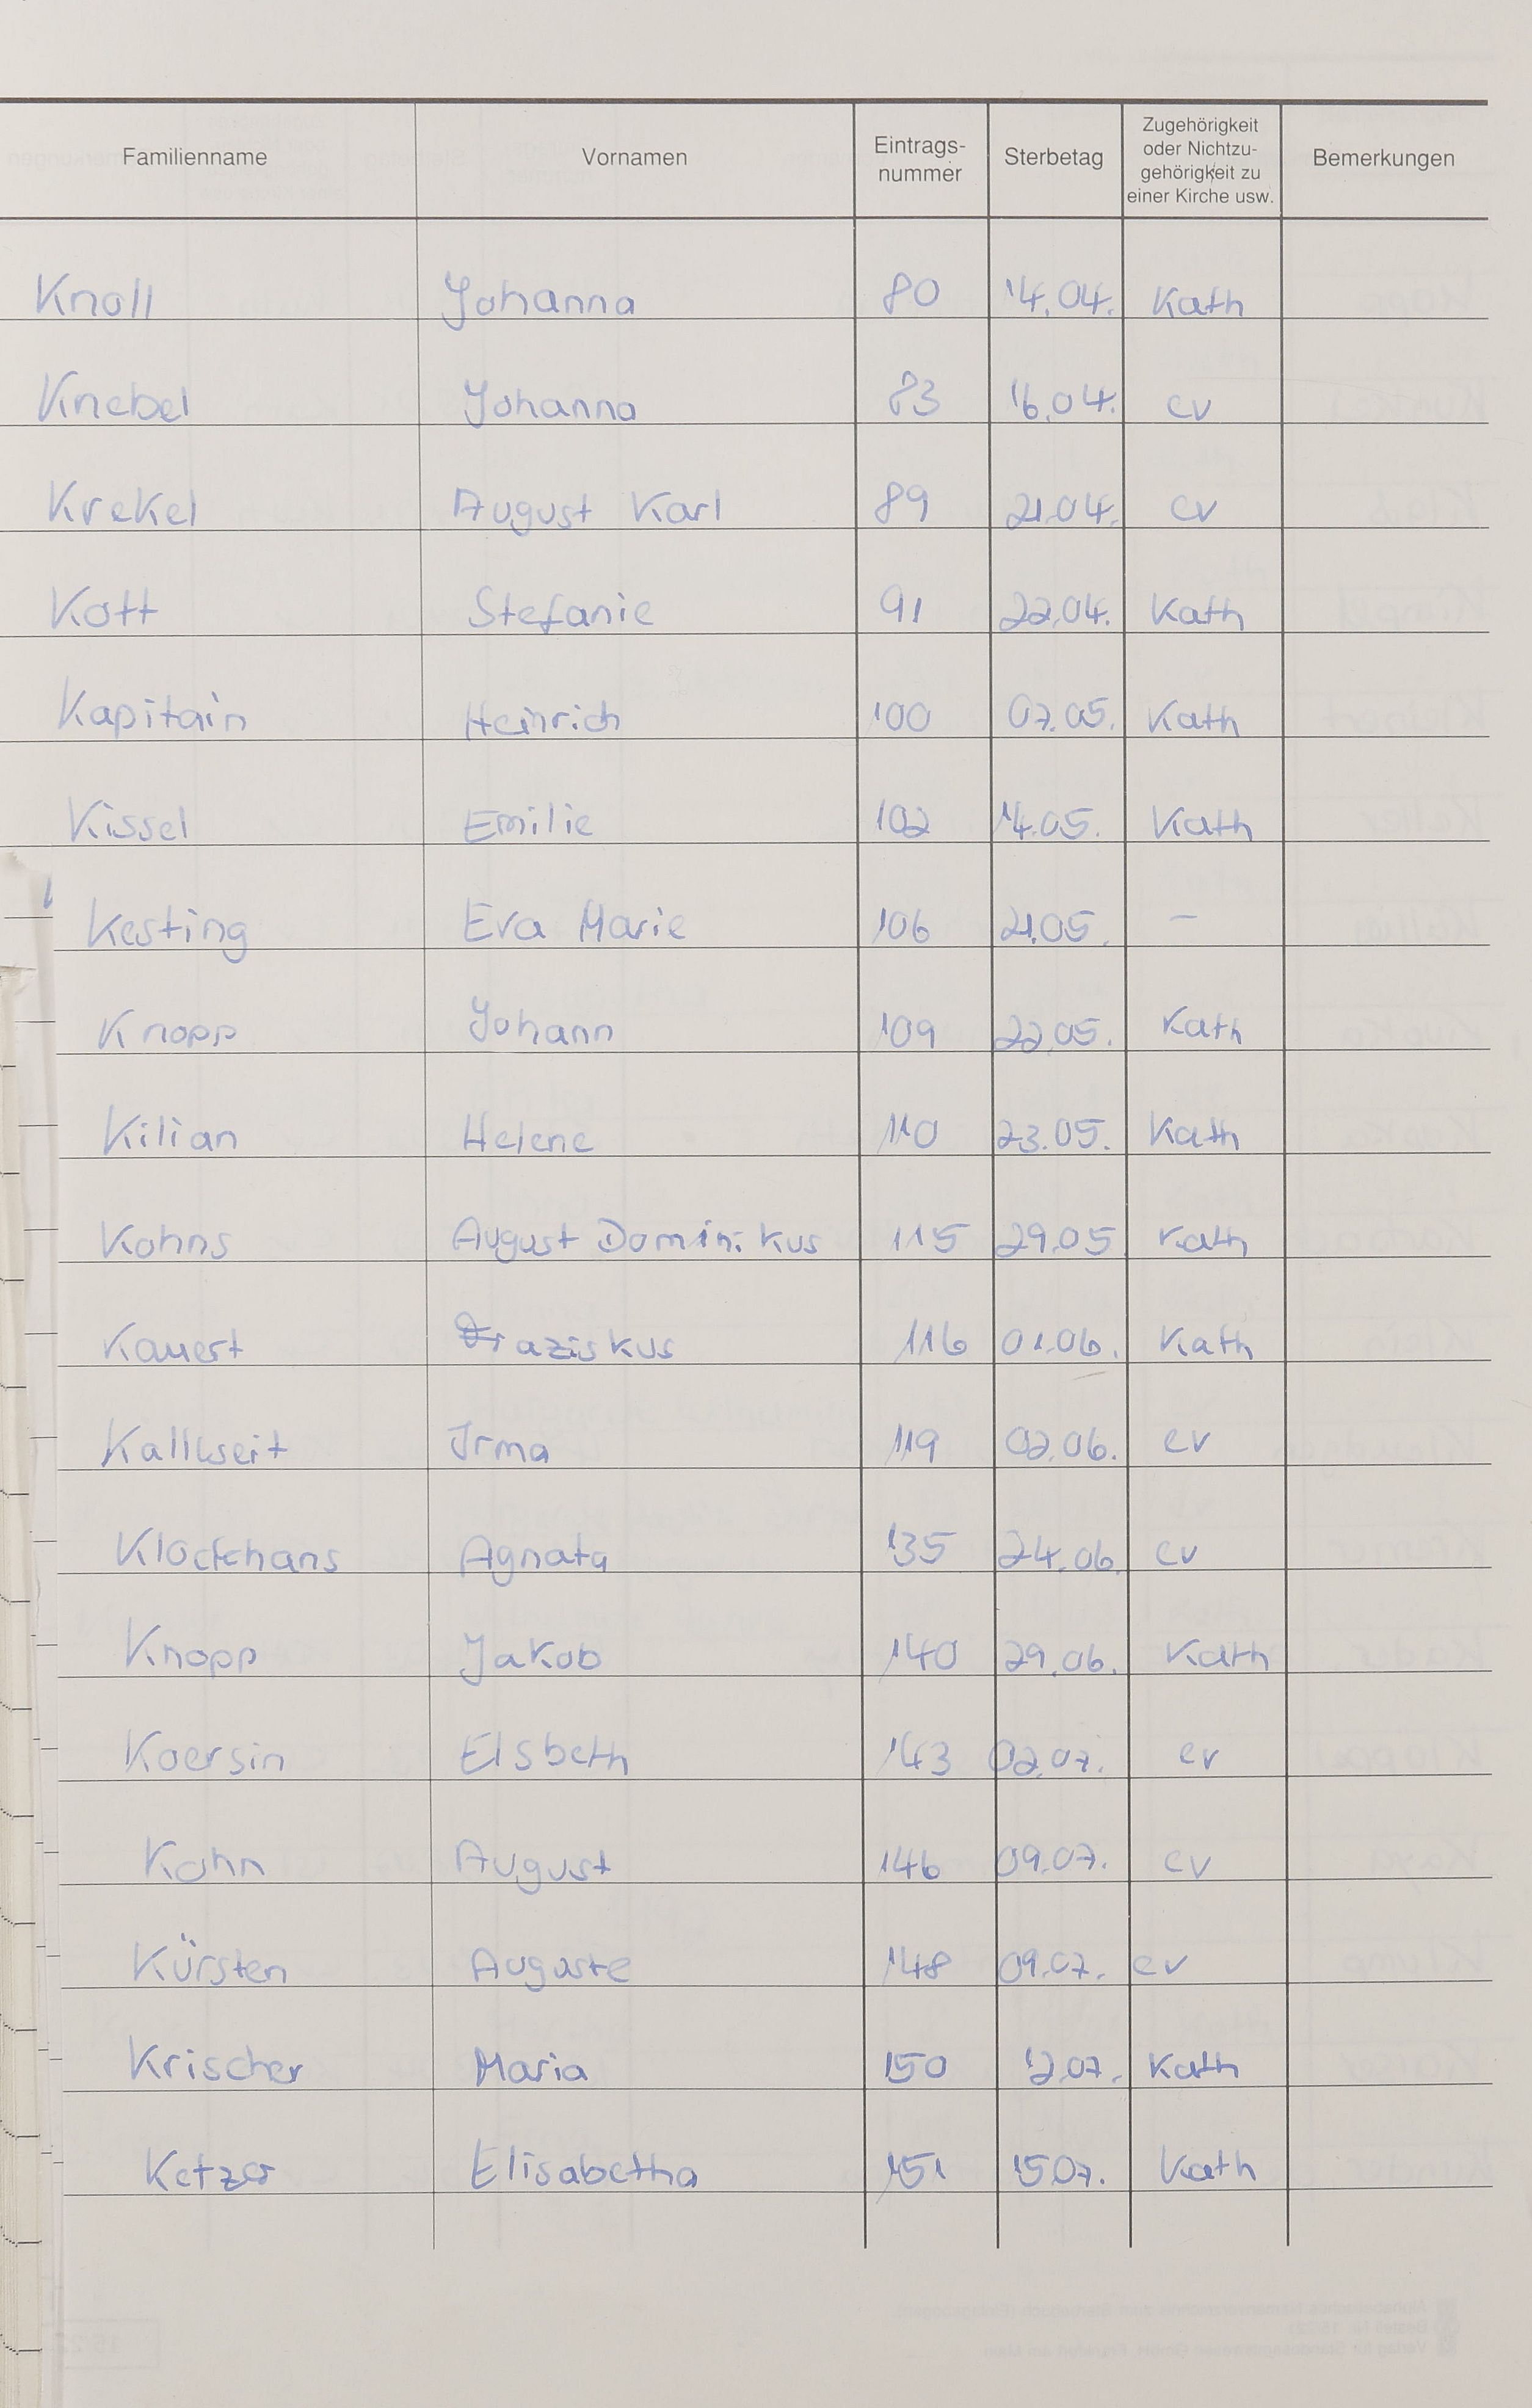 Familienname Vornamen Eintrags-nummer Sterbetag Zugehörigkeit oder Nichtzu-gehörigkeit zu einer Kirche usw. Bemerkungen
Knoll Johanna 80 14.04. Kath
Knebel Johanna 83 16.04. ev
Krekel August Karl 89 21.04. ev
Kott Stefanie 91 22.04. Kath
Kapitain Heinrich 100 07.05. Kath
Kissel Emilie 102 14.05. Kath
Kesting Eva Marie 106 21.05. –
Knopp Johann 109 22.05. Kath
Kilian Helene 110 23.05. Kath
Kohns August Dominikus 115 29.05 Kath
Kauert Fraziskus 116 01.06. Kath
Kallweit Irma 119 02.06. ev
Klöckhans Agnata 135 24.06. ev
Knopp Jakob 140 29.06. Kath
Koersin Elsbeth 143 02.07. ev
Kohn August 146 09.07. ev
Kürsten Auguste 148 09.07. ev
Krischer Maria 150 12.07. Kath
Ketzer Elisabetha 151 15.07. Kath